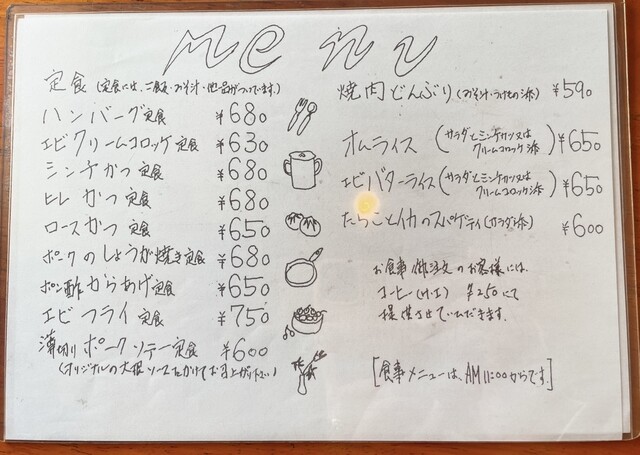 menu
定食 (定食には、ご飯・おみそ汁・他品がついてます。)
ハンバーグ定食 ¥680
エビクリームコロッケ定食 ¥630
ミンチかつ定食 ¥680
ヒレかつ定食 ¥680
ロースかつ定食 ¥650
ポークのしょうが焼き定食 ¥680
ポン酢からあげ定食 ¥650
エビフライ定食 ¥750
薄切りポークソテー定食 ¥600
(オリジナルの大根ソースをかけてお召上がり下さい)
焼肉どんぶり (おみそ汁・つけもの添) ¥590
オムライス (サラダとミンチカツ又はクリームコロッケ添) ¥650
エビバターライス (サラダとミンチカツ又はクリームコロッケ添) ¥650
たらことイカのスパゲティ (サラダ添) ¥600
お食事御注文のお客様には、
コーヒー ¥250にて
提供させていただきます。
[食事メニューは、AM11:00からです。]